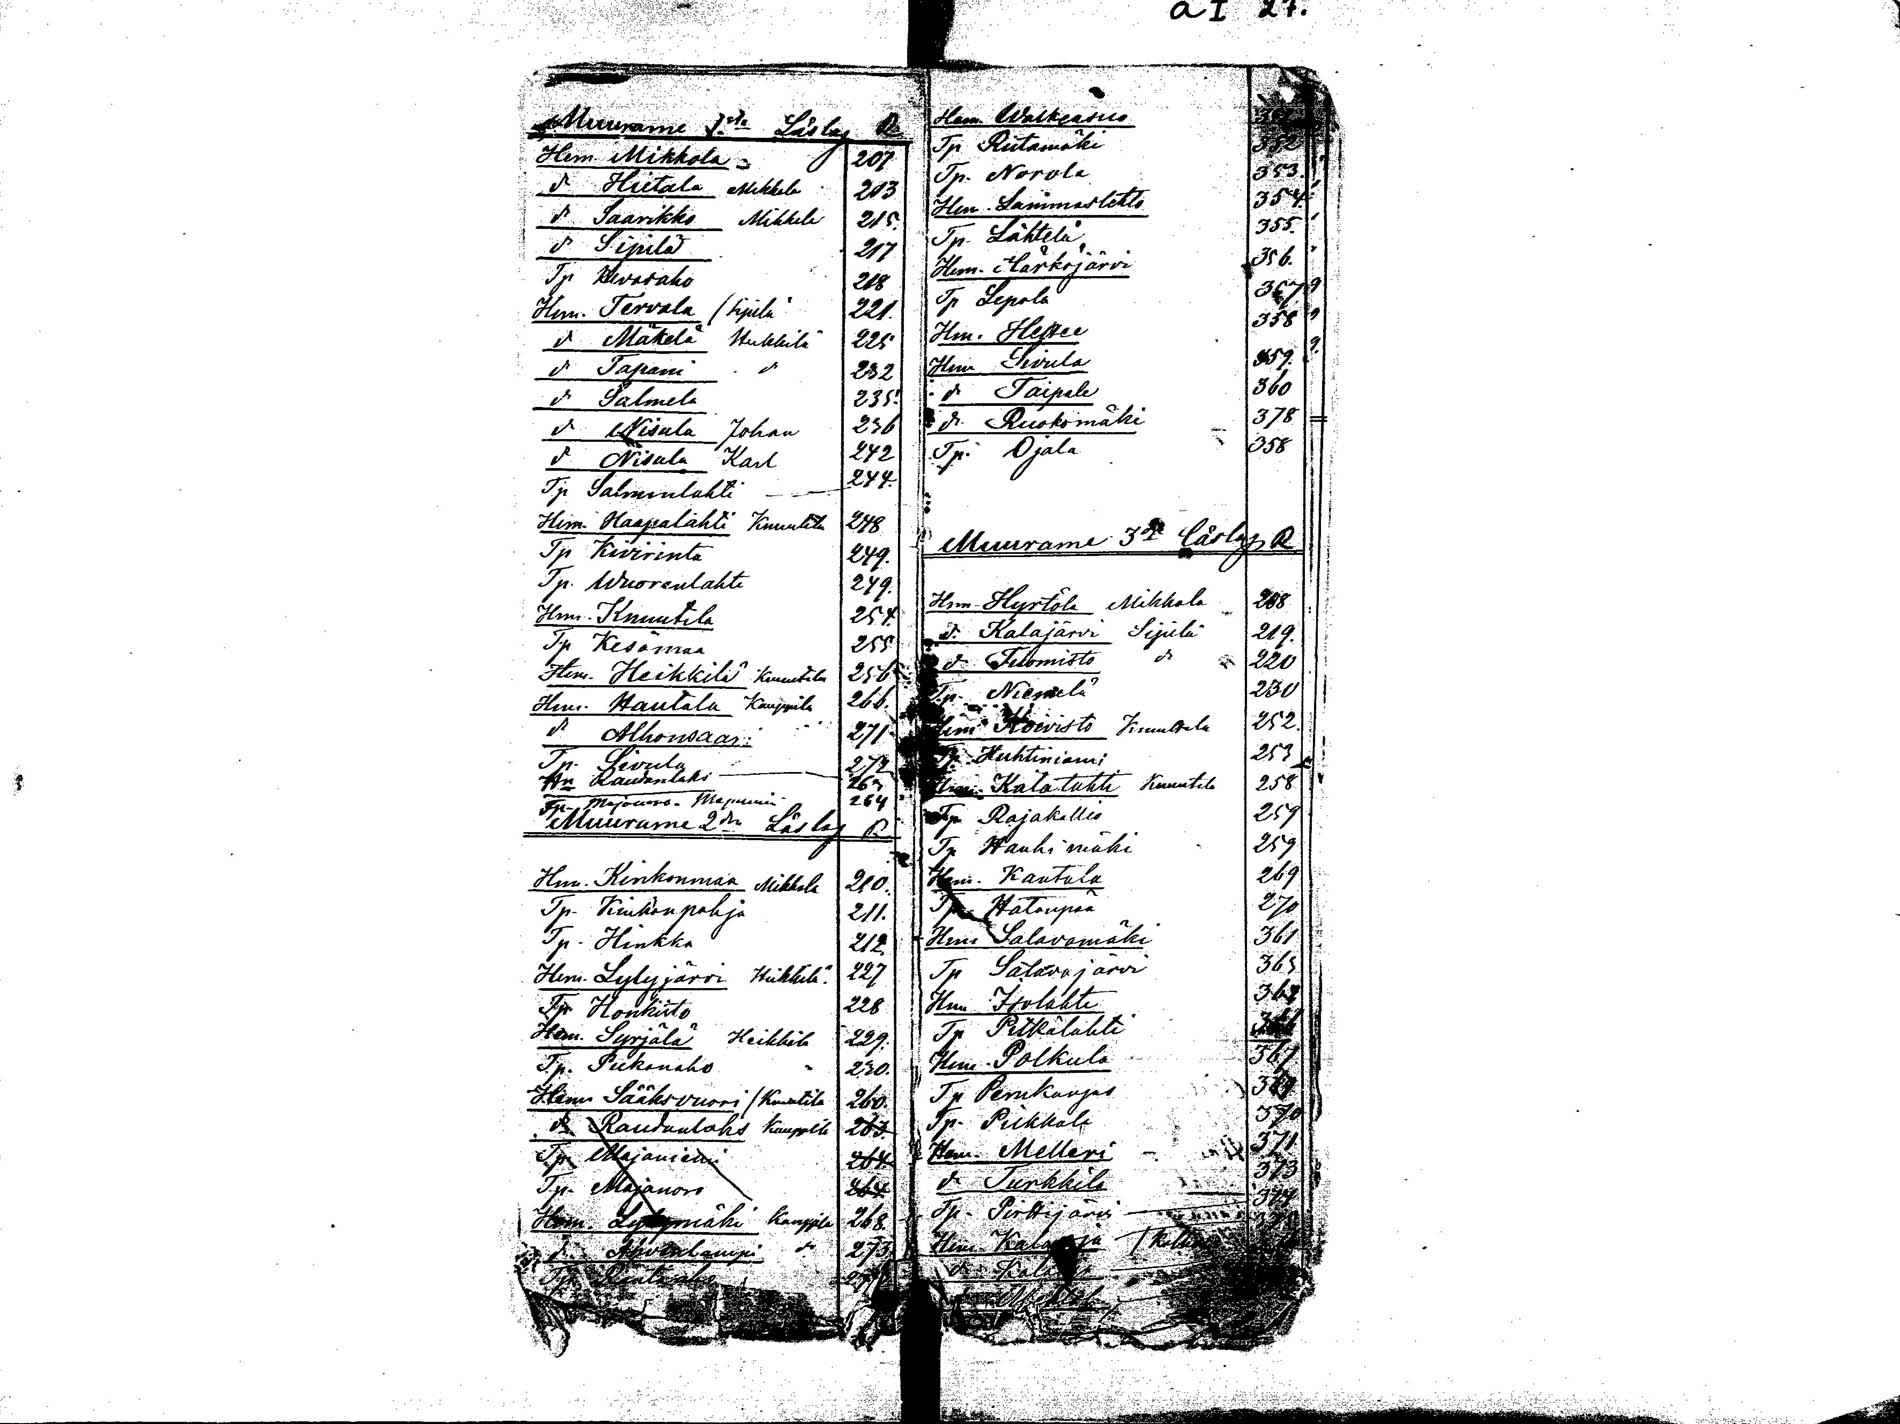 a I 27.
Muurame 1sta Läslag R
Hem. Mikkola 207
d Hietala Mikkola 213
d Saarikko Mikkola 215.
d Sipilä 217
Tp 218
Hem. Tervala / Sipilä 221.
d Mäkelä Heikkilä 225
d Tapani d 232
d Salmela 235.
d Nisula Johan 236
d Nisula Karl 242
Tp Salmenlahti 244.
Hem. Haapalahti Knuutila 248
Tp Kivirinta 249.
Tp. Wuorenlahti 249.
Hem. Knuutila 254.
Tp Kesämaa 255
Hem. Heikkilä Knuutila 256
Hem. Hautala Kauppila 266.
d Alhonsaari 271
Tp. Sivula 272
Hm Raudanlaks 263
Tp. Majanoro Majaniemi 264
Muurame 2dra Läslag R
Hem. Kinkonmaa Mikkola 210.
Tp. Kinkonpohja 211.
Tp. Hinkka 212.
Hem. Lylyjärvi Heikkilä. 227
Tp Honkisto 228
Hem. Syrjälä Heikkilä 229.
Tp. Pukanaho 230.
Hem. Sääksvuori / Knuutila 260.
d. Raudanlaks Kauppila 263.
Tp. Majaniemi 264.
Tp. Majanoro 264
Hem. Lylymäki Kauppila 268.
d. Ahvenlampi d 273
Tp. Rintaaho
Hem. Walkeasuo
Tp Riitamäki 352
Tp. Norola 353.
Hem. Lammaslehto 354.
Tp. Lähtelä 355.
Hem. Härkojärvi 356.
Tp Lepola 357
Hem. 358
Hem Sivula 359.
d. Taipale 360
d. Ruokomäki 378
Tp. Ojala 358
Muurame 3e Läslag R
Hem. Hyrtölä Mikkola 208
d. Kalajärvi Sipilä 219.
d. Tuomisto d 220
Tp. Niemelä 230
Hem Koivisto Knuutila 252.
Tp. Huhtiniemi 253
Hem. Kalalahti Knuutila 258
Tp. Rajakallio 259
Tp Hauhimäki 259
Hem. Kautala 269
Tp. Hatanpää 270
Hem Salavamäki 361
Tp Salavajärvi 365
Hem Isolahti
Tp Pitkälahti 366
Hem. Polkula 367
Tp Perukangas 369
Tp. Pikkala 370
Hem. Melleri 371
d. Turkkila 373
Tp. Pirttijärvi 374
Hem. Kalaoja
d.